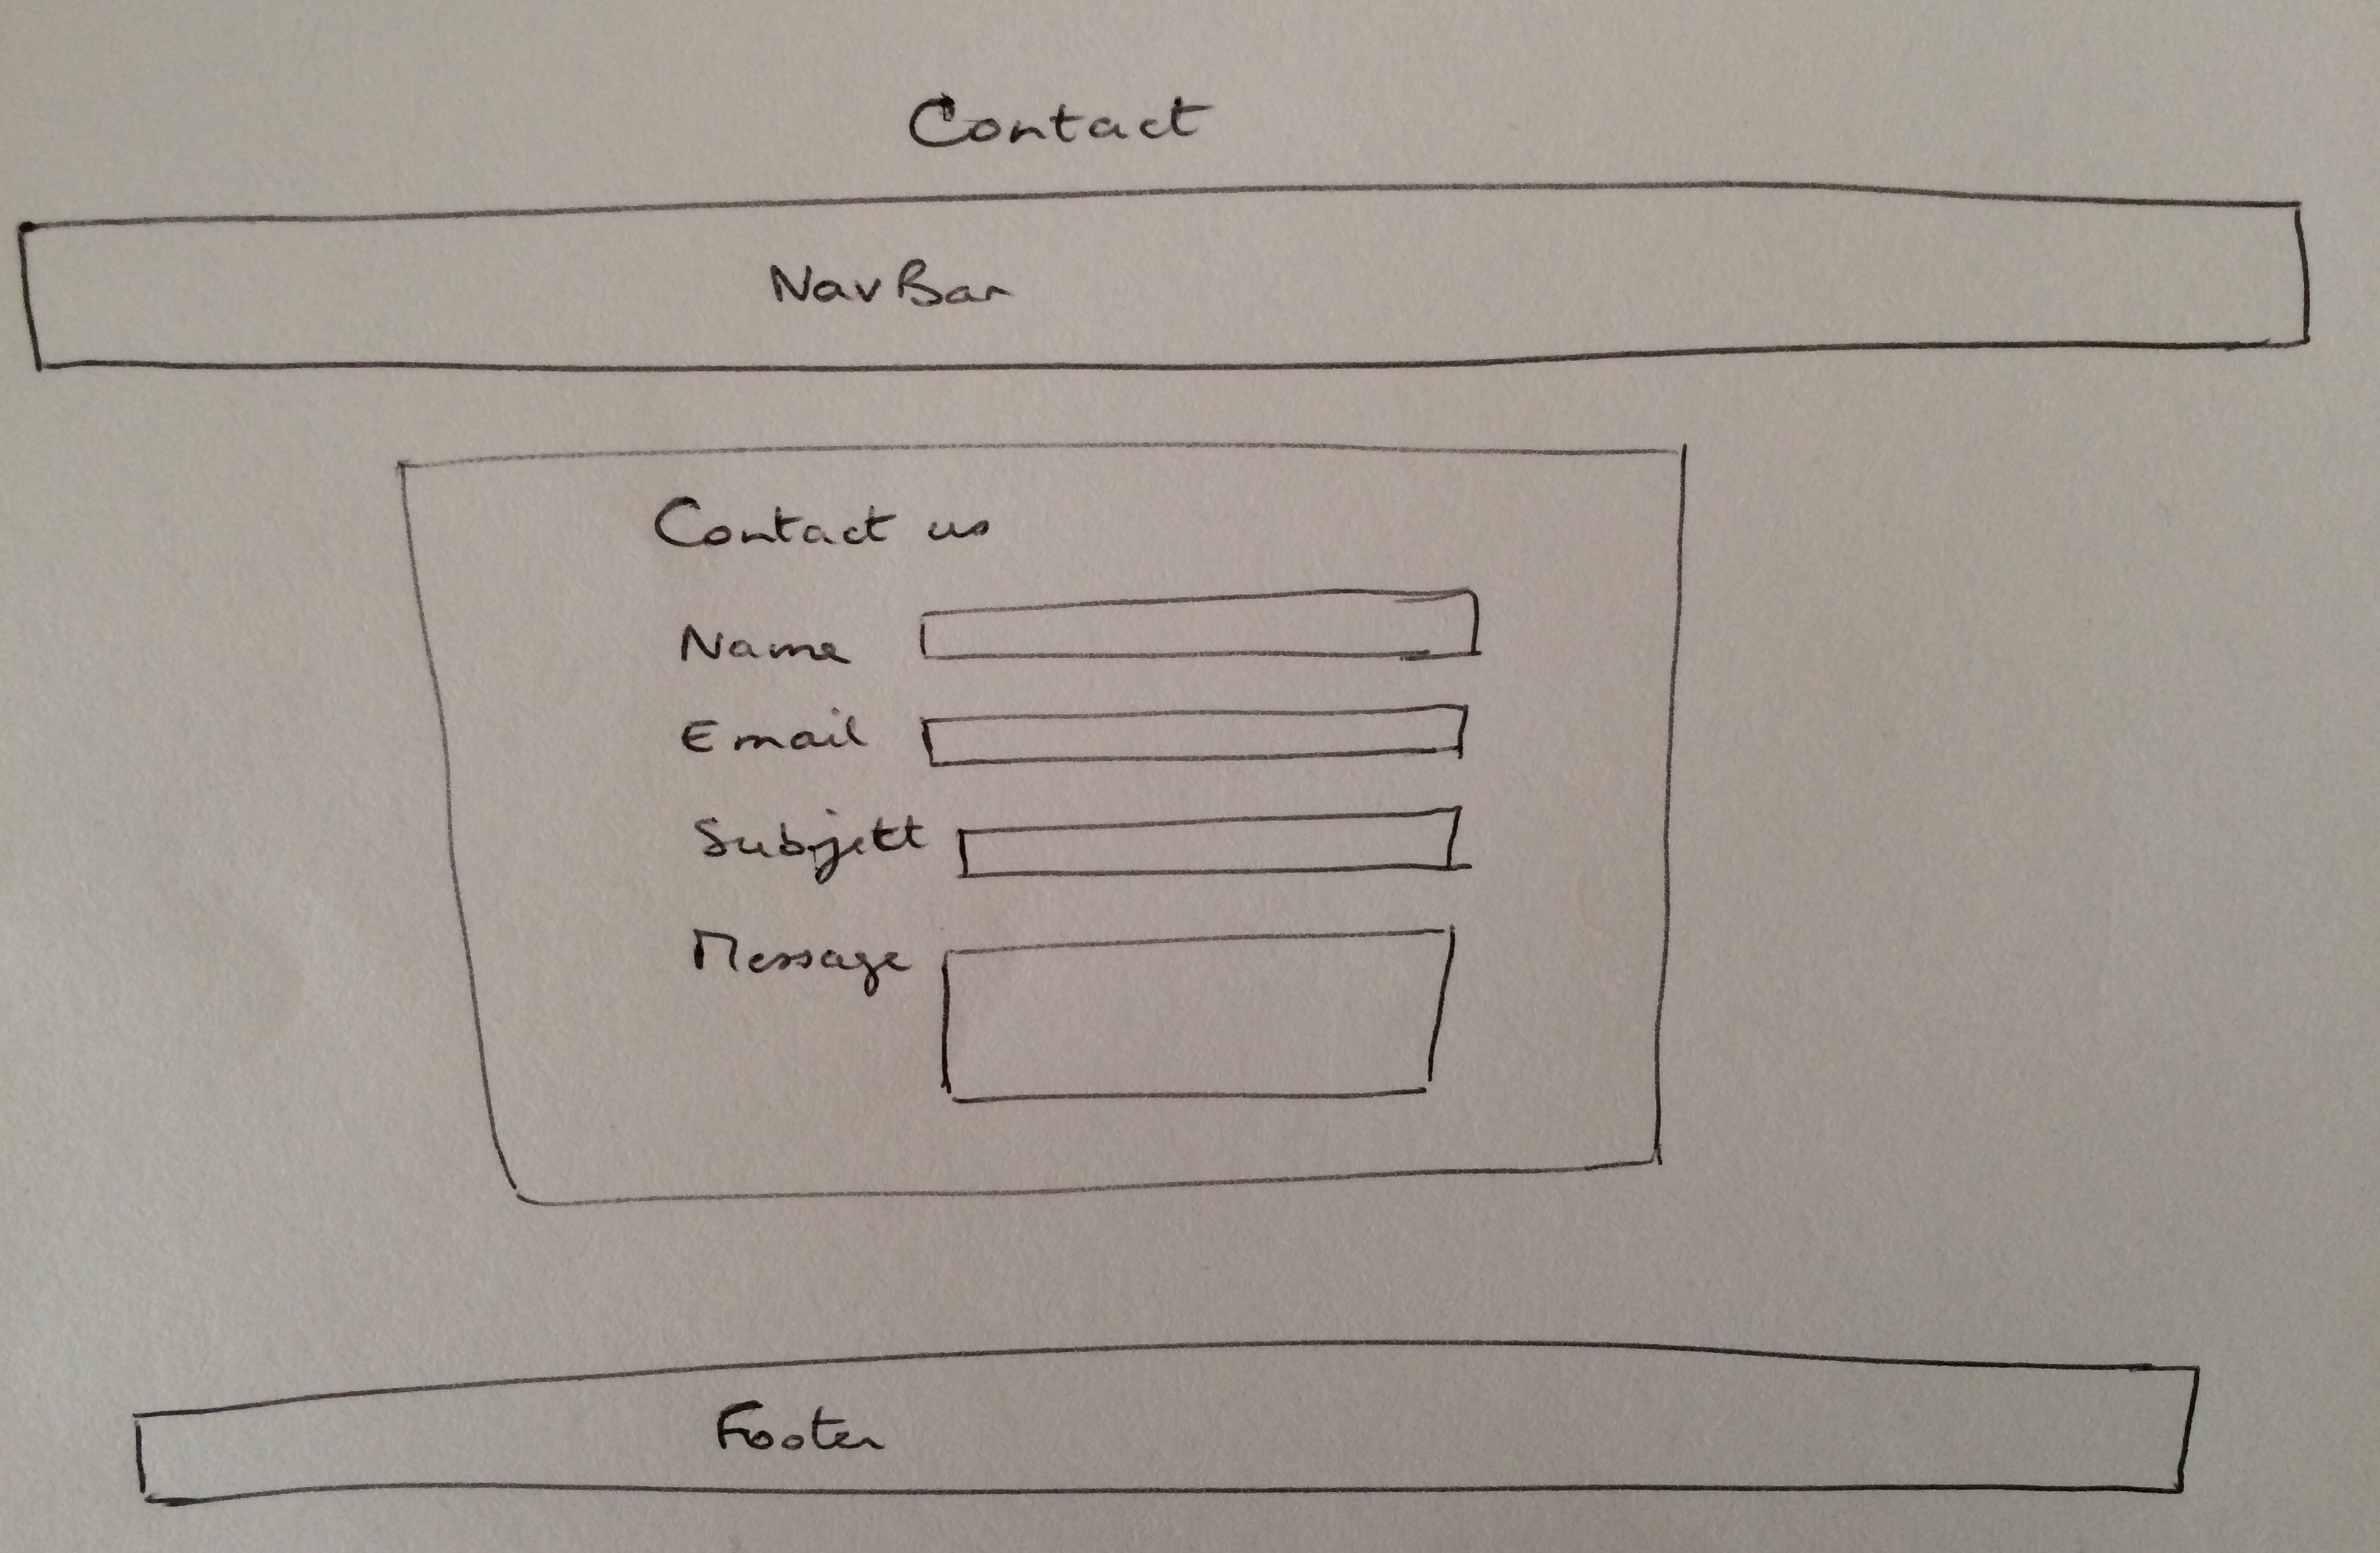 Contact
NavBar
Contact us
Name
Email
Subject
Message
Footer